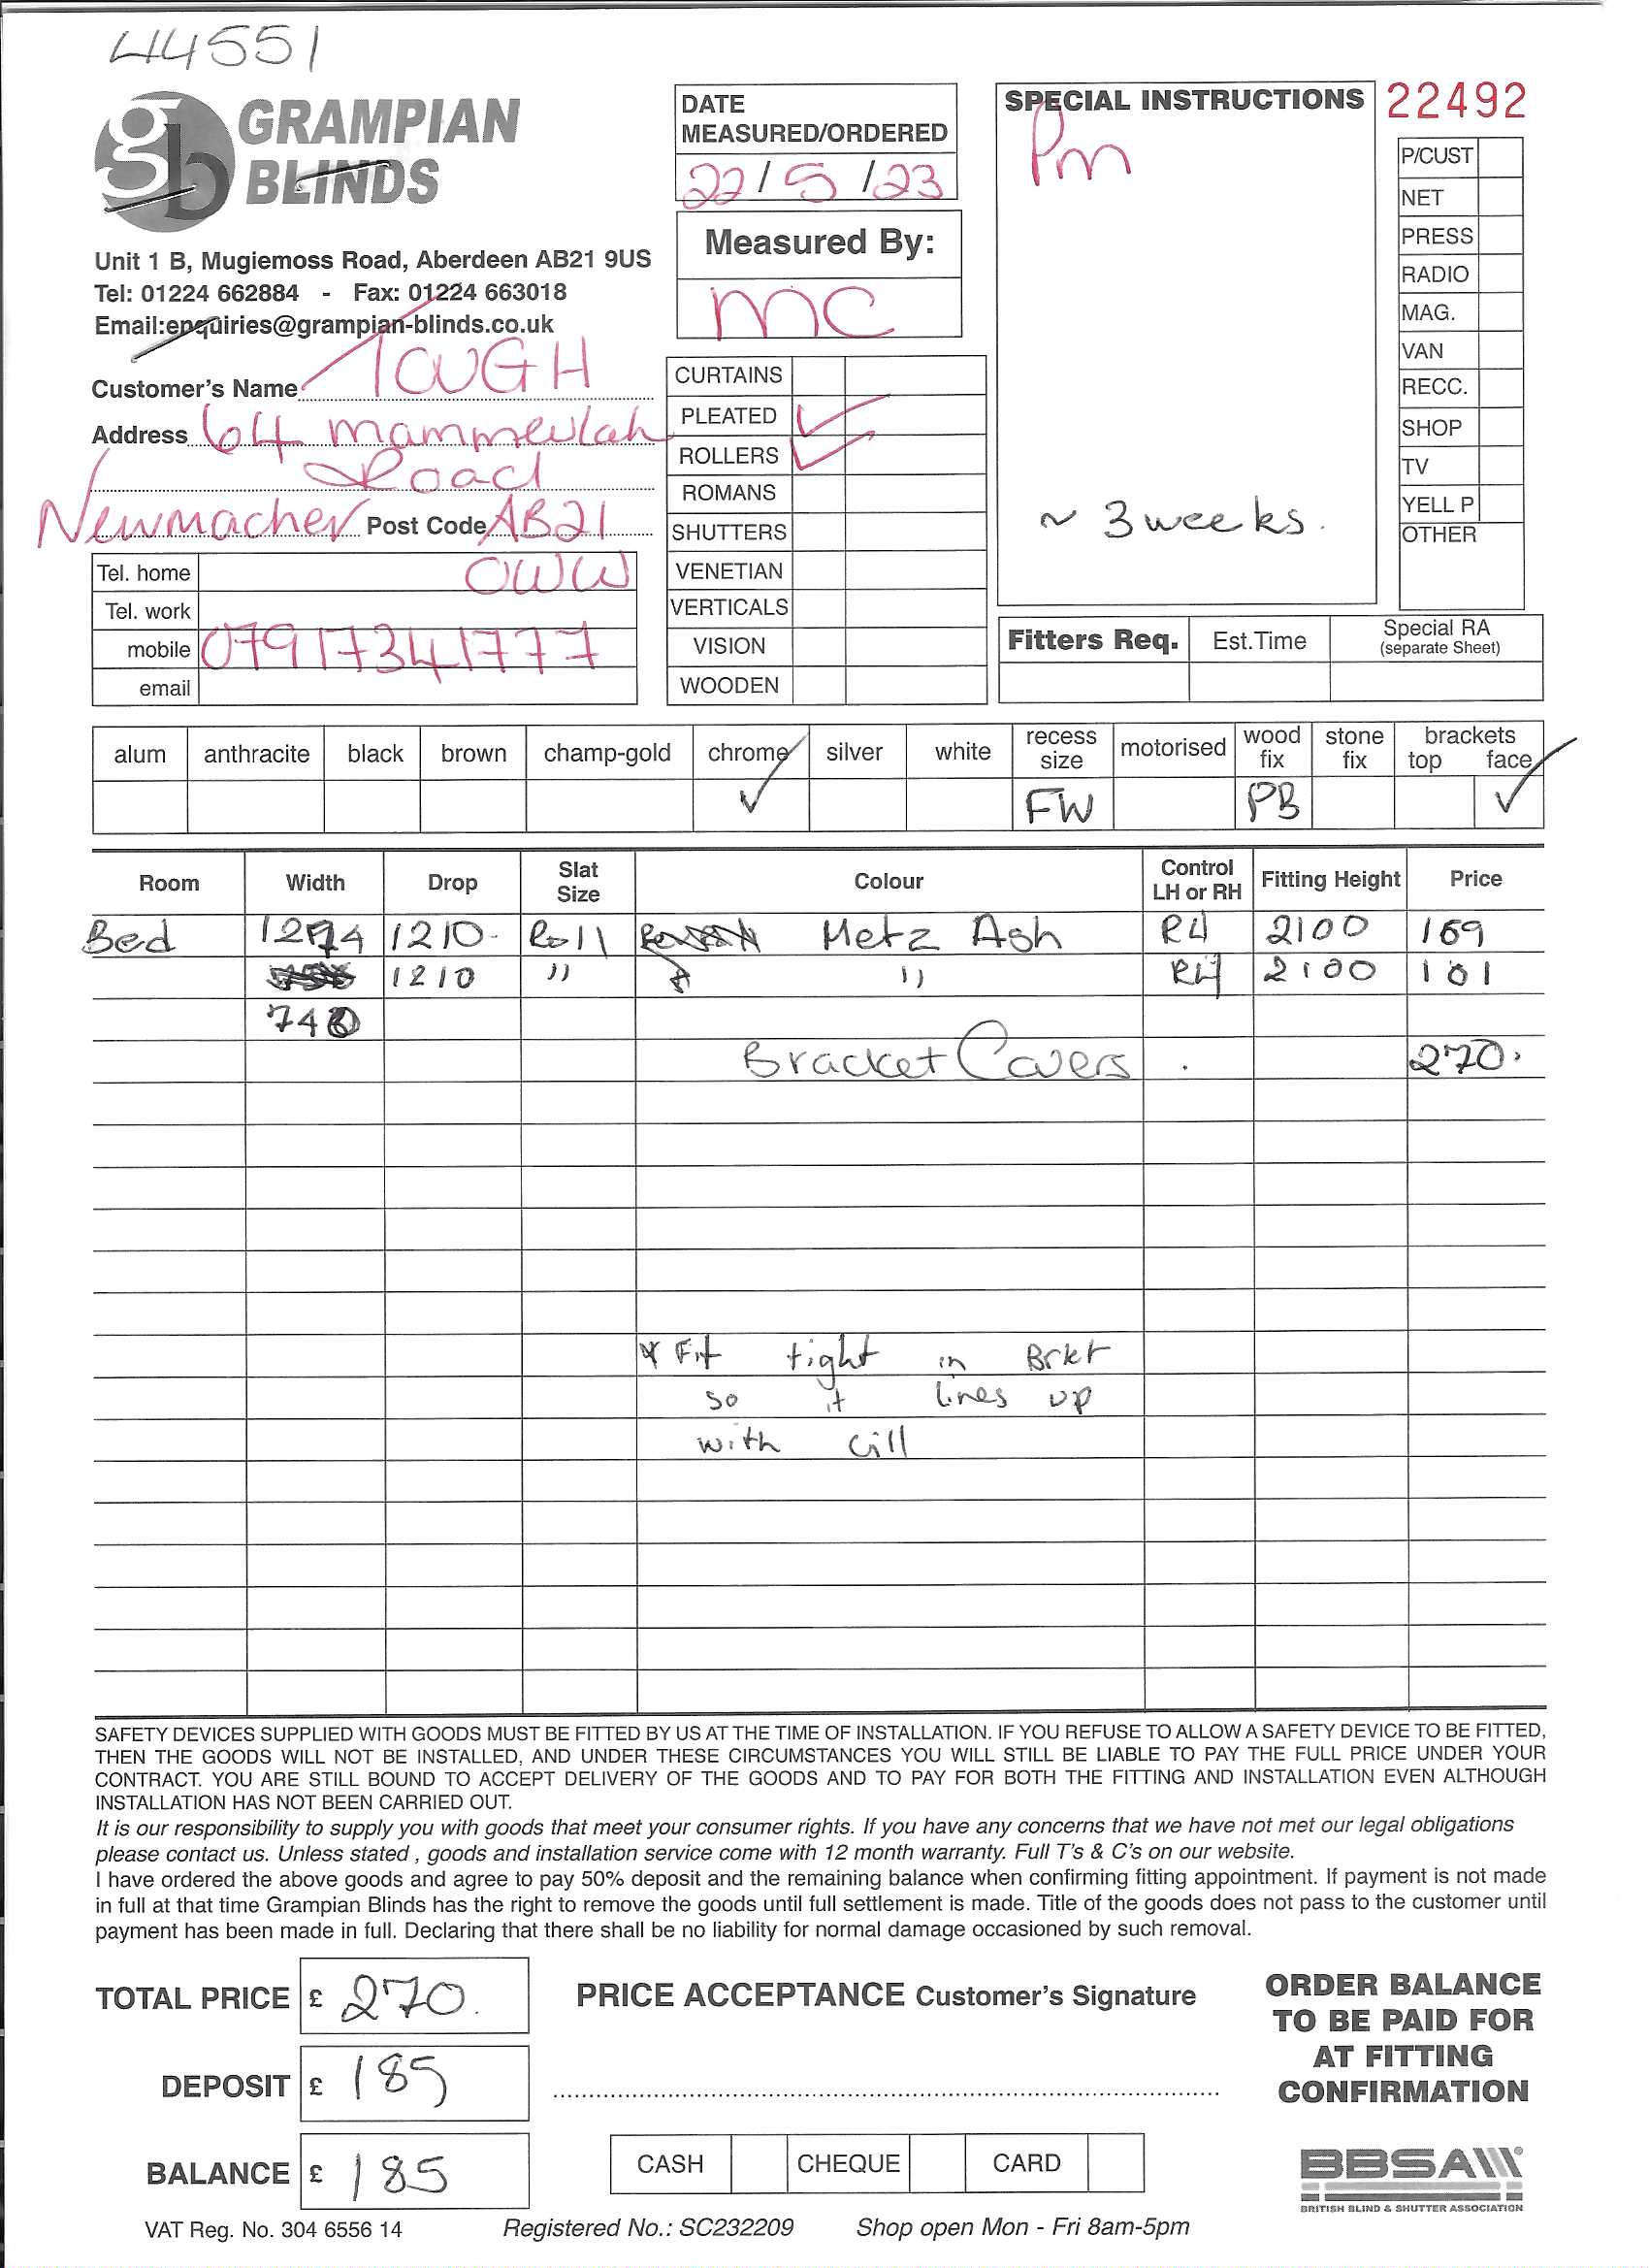 44551
gb GRAMPIAN
BLINDS
Unit 1 B, Mugiemoss Road, Aberdeen AB21 9US
Tel: 01224 662884 - Fax: 01224 663018
Email:enquiries@grampian-blinds.co.uk
Customer's Name TOUGH
Address 64 Mammeulah
Road
Newmacher Post Code AB21
0WW
Tel. home
Tel. work
mobile 07917341777
email
DATE
MEASURED/ORDERED
22/5/23
Measured By:
MC
CURTAINS
PLEATED ✓
ROLLERS ✓
ROMANS
SHUTTERS
VENETIAN
VERTICALS
VISION
WOODEN
SPECIAL INSTRUCTIONS
Pm
~ 3 weeks.
22492
P/CUST
NET
PRESS
RADIO
MAG.
VAN
RECC.
SHOP
TV
YELL P
OTHER
Fitters Req. Est.Time Special RA
(separate Sheet)
alum anthracite black brown champ-gold chrome silver white recess size motorised wood fix stone fix brackets top face
✓ FW PB ✓
Room Width Drop Slat Size Colour Control LH or RH Fitting Height Price
Bed 1274 1210 Roll Metz Ash RH 2100 169
1210 " " RH 2100 101
740
Bracket Covers 270.
* Fit tight in Brkt
so it lines up
with Cill
SAFETY DEVICES SUPPLIED WITH GOODS MUST BE FITTED BY US AT THE TIME OF INSTALLATION. IF YOU REFUSE TO ALLOW A SAFETY DEVICE TO BE FITTED,
THEN THE GOODS WILL NOT BE INSTALLED, AND UNDER THESE CIRCUMSTANCES YOU WILL STILL BE LIABLE TO PAY THE FULL PRICE UNDER YOUR
CONTRACT. YOU ARE STILL BOUND TO ACCEPT DELIVERY OF THE GOODS AND TO PAY FOR BOTH THE FITTING AND INSTALLATION EVEN ALTHOUGH
INSTALLATION HAS NOT BEEN CARRIED OUT.
It is our responsibility to supply you with goods that meet your consumer rights. If you have any concerns that we have not met our legal obligations
please contact us. Unless stated , goods and installation service come with 12 month warranty. Full T's & C's on our website.
I have ordered the above goods and agree to pay 50% deposit and the remaining balance when confirming fitting appointment. If payment is not made
in full at that time Grampian Blinds has the right to remove the goods until full settlement is made. Title of the goods does not pass to the customer until
payment has been made in full. Declaring that there shall be no liability for normal damage occasioned by such removal.
TOTAL PRICE £ 270.
DEPOSIT £ 185
BALANCE £ 185
PRICE ACCEPTANCE Customer's Signature
CASH CHEQUE CARD
ORDER BALANCE
TO BE PAID FOR
AT FITTING
CONFIRMATION
BBSA
BRITISH BLIND & SHUTTER ASSOCIATION
VAT Reg. No. 304 6556 14 Registered No.: SC232209 Shop open Mon - Fri 8am-5pm